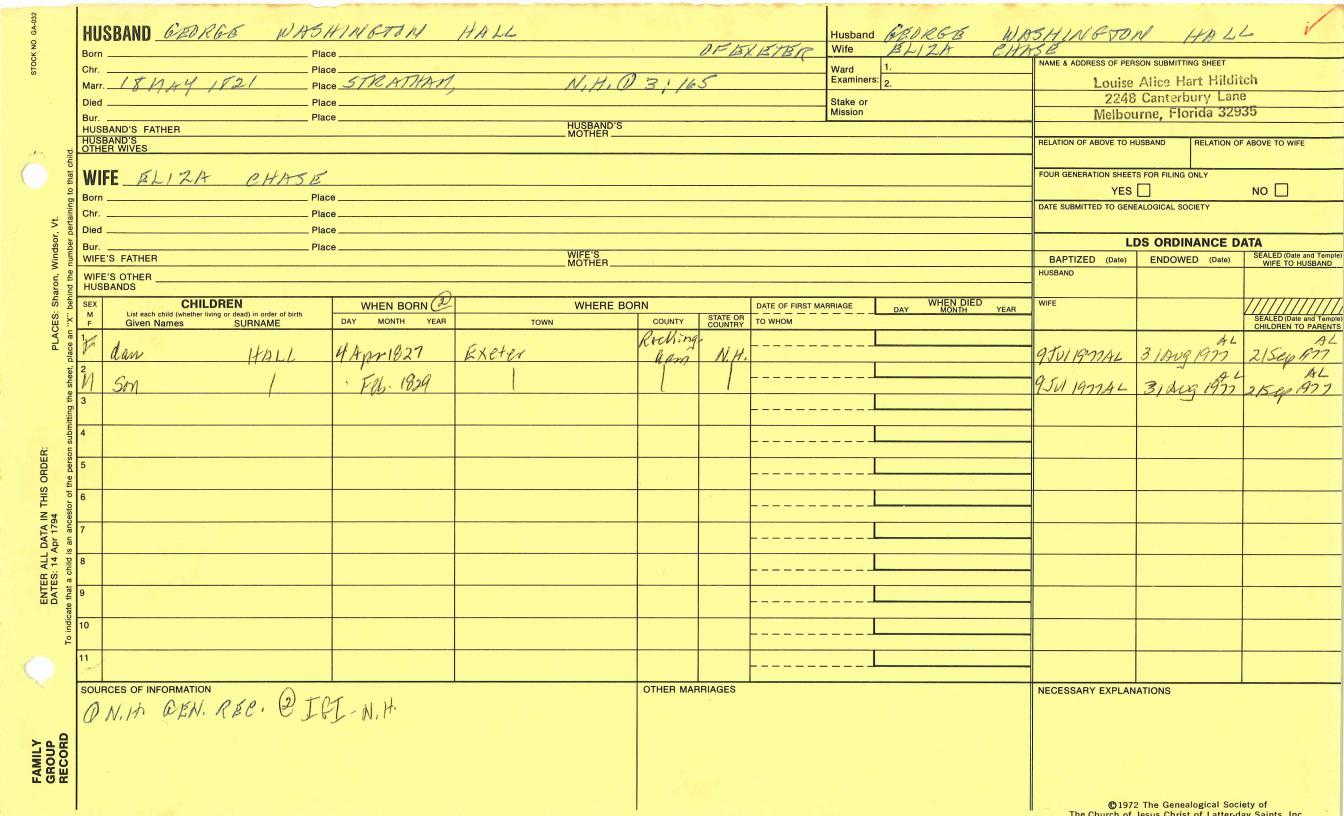 STOCK NO. GA-032
HUSBAND GEORGE WASHINGTON HALL
Born Place OF EXETER
Chr. Place
Marr. 18 MAY 1821 Place STRATHAM, N.H. ① 3:165
Died Place
Bur. Place
HUSBAND'S FATHER HUSBAND'S MOTHER
HUSBAND'S OTHER WIVES
Husband GEORGE WASHINGTON HALL
Wife ELIZA CHASE
Ward Examiners: 1.
2.
Stake or Mission
NAME & ADDRESS OF PERSON SUBMITTING SHEET
Louise Alice Hart Hilditch
2248 Canterbury Lane
Melbourne, Florida 32935
RELATION OF ABOVE TO HUSBAND RELATION OF ABOVE TO WIFE
FOUR GENERATION SHEETS FOR FILING ONLY
YES NO
DATE SUBMITTED TO GENEALOGICAL SOCIETY
WIFE ELIZA CHASE
Born Place
Chr. Place
Died Place
Bur. Place
WIFE'S FATHER WIFE'S MOTHER
WIFE'S OTHER HUSBANDS
LDS ORDINANCE DATA
BAPTIZED (Date) ENDOWED (Date) SEALED (Date and Temple) WIFE TO HUSBAND
HUSBAND
WIFE
SEALED (Date and Temple) CHILDREN TO PARENTS
SEX M F CHILDREN WHEN BORN ② WHERE BORN DATE OF FIRST MARRIAGE WHEN DIED
List each child (whether living or dead) in order of birth
Given Names SURNAME DAY MONTH YEAR TOWN COUNTY STATE OR COUNTRY TO WHOM DAY MONTH YEAR
1 F dau HALL 4 Apr 1827 Exeter Rockingham N.H. 9 Jul 1977 AL 31 Aug 1977 AL 21 Sep 1977 AL
2 M Son Feb. 1829 9 Jul 1977 AL 31 Aug 1977 AL 21 Sep 1977 AL
3
4
5
6
7
8
9
10
11
SOURCES OF INFORMATION
① N.H. GEN. REC. ② IGI - N.H.
OTHER MARRIAGES
NECESSARY EXPLANATIONS
©1972 The Genealogical Society of
The Church of Jesus Christ of Latter-day Saints, Inc.
FAMILY GROUP RECORD
ENTER ALL DATA IN THIS ORDER:
DATES: 14 Apr 1794
PLACES: Sharon, Windsor, Vt.
To indicate that a child is an ancestor of the person submitting the sheet, place an "X" behind the number pertaining to that child.